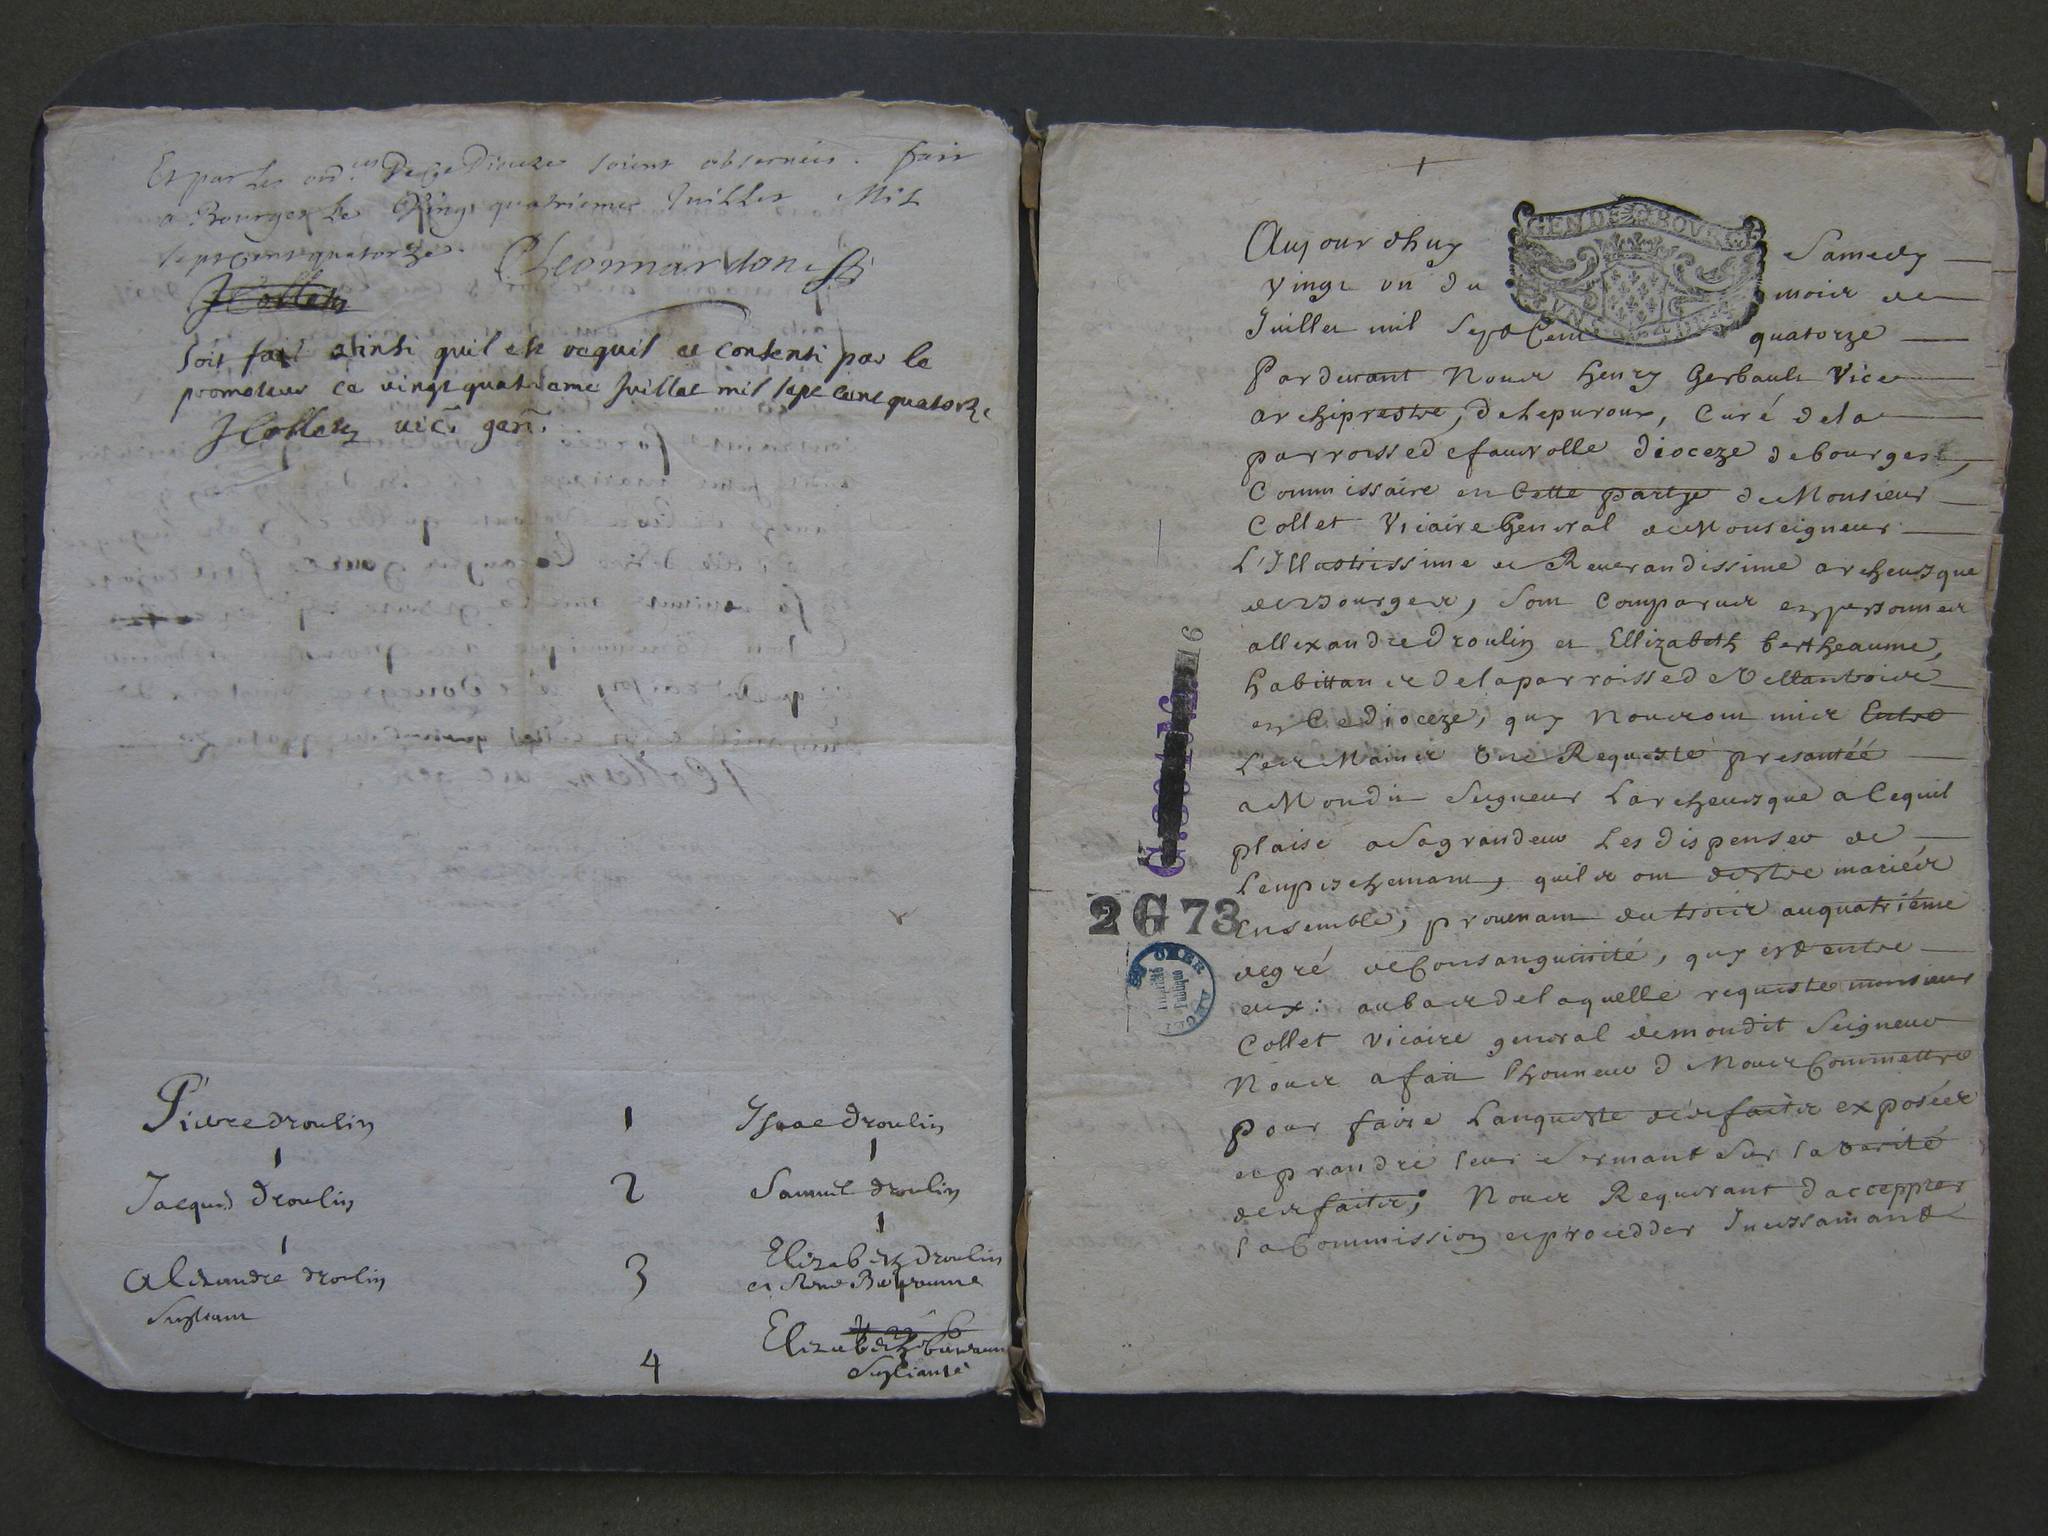 Et par les ord.res De Ce Dioceze soient observées. fait
a Bourges le Vingt quatrieme Juillet Mil
sept Cent quatorze. Cheonnardon
JCollet
soit fait ainsi quil est requit et consenti par le
promoteur ce vingt quatrieme Juillet mil sept cent quatorze
JCollet vic. gen.
Pierre droulin 1 Isaac droulin
Jacques droulin 2 Samuel droulin
Alexandre droulin 3 Elizabeth droulin
Supliant et René Bertheaume
4 Elizabeth
Supliante
Aujourdhuy Samedy
GEN DE BOURG
vingt un du mois de
Juillet mil Sept Cent quatorze
Pardevant Nous henry Gerbault Vice
archiprestre, de Lepuroux, Curé de la
parroisse de faverolle dioceze de bourges,
Commissaire en Cette partye de Monsieur
Collet Vicaire General de Monseigneur
L'Illustrissime et Reverandissime archevesque
de Bourges, Sont Comparus en personnes
allexandre drouliy et Ellizabeth bertheaume,
habittans de la parroisse de Vellantrois
en Ce dioceze, quy Nous ont mis Entre
Les Mains Une Requeste presantéé
a Mondit Seigneur Larchevesque a Cequil
plaise a Sa grandeur Les dispenser de
Lempeschemant, quils ont destre mariés
Ensemble, provenant du trois au quatriéme
degré de Consanguinité, quy est entre
eux: au bas de laquelle requeste monsieur
Collet Vicaire general de mondit Seigneur
Nous a fait lhonneur de Nous Commettre
Pour faire Lanqueste des faits exposés
et prandre leur Sermant Sur la verité
des faits, Nous Requerant daccepter
la Commission et procedder Incessamant
2 G 73
ST OMER
16